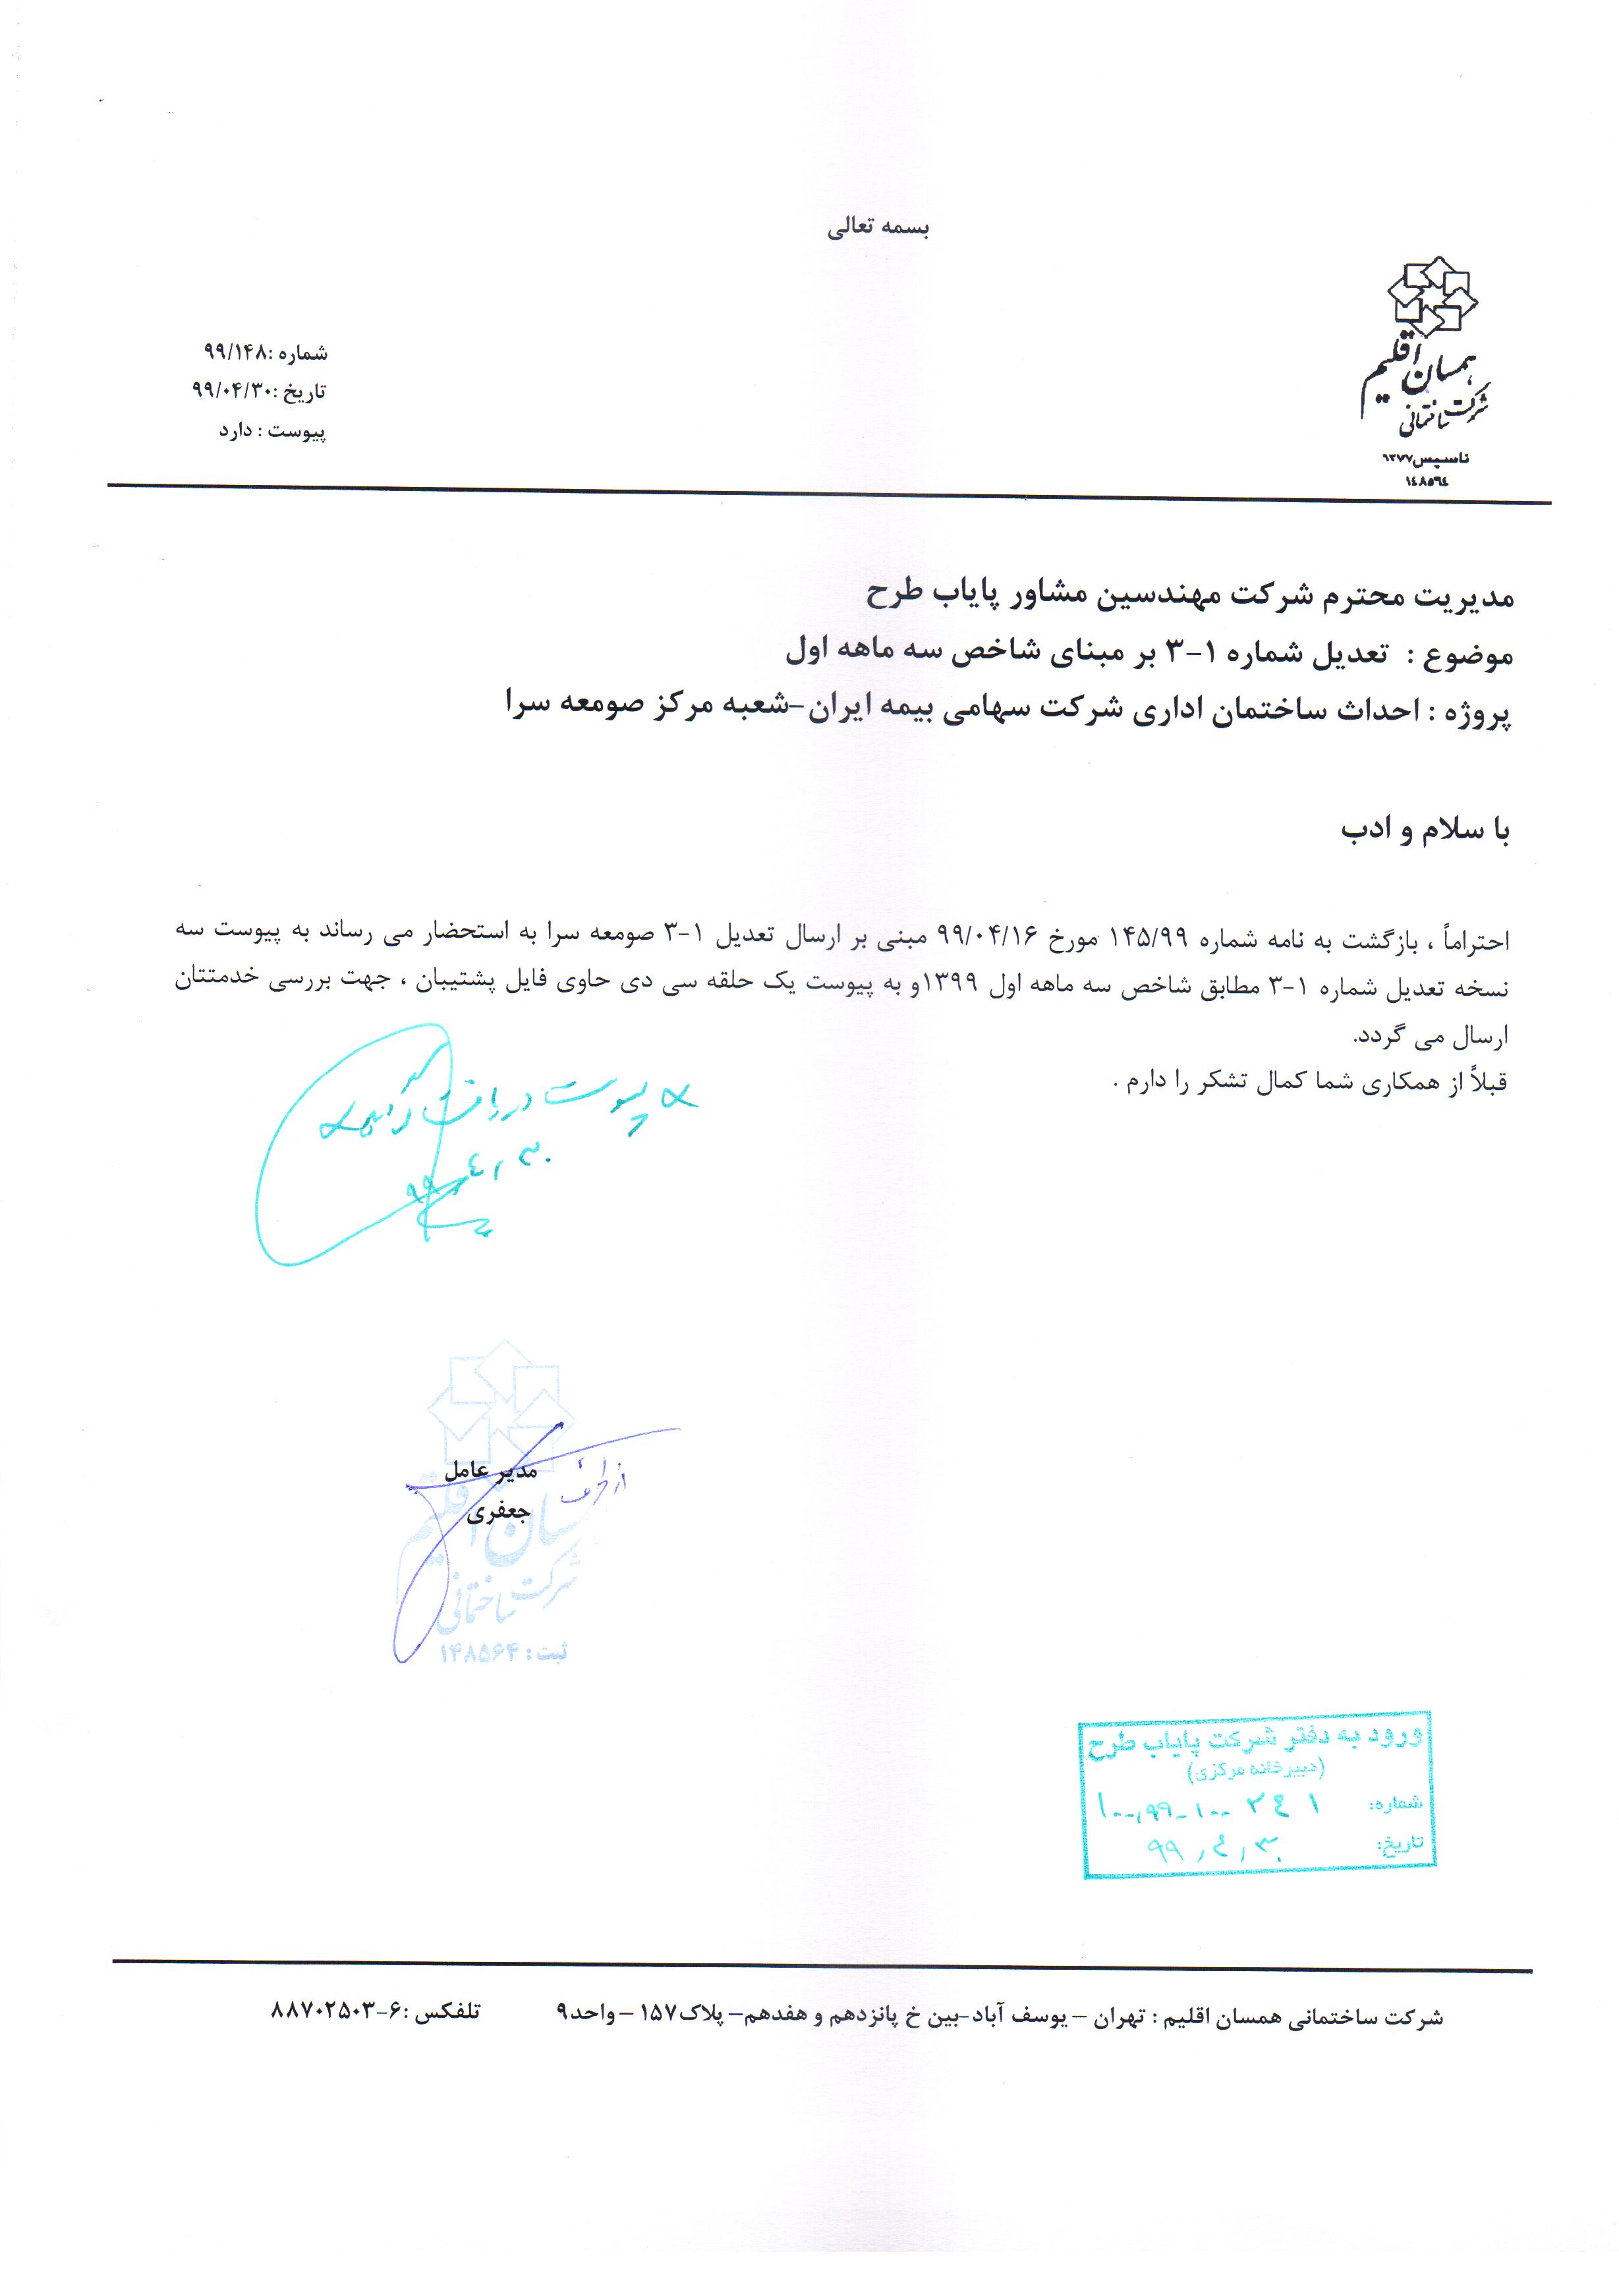 بسمه تعالی
همسان اقلیم
شرکت ساختمانی
تاسیس ۱۳۷۷
۱٤۸۵٦٤
شماره :۹۹/۱۴۸
تاریخ :۹۹/۰۴/۳۰
پیوست : دارد
مدیریت محترم شرکت مهندسین مشاور پایاب طرح
موضوع : تعدیل شماره ۱-۳ بر مبنای شاخص سه ماهه اول
پروژه : احداث ساختمان اداری شرکت سهامی بیمه ایران-شعبه مرکز صومعه سرا
با سلام و ادب
احتراماً ، بازگشت به نامه شماره ۱۴۵/۹۹ مورخ ۹۹/۰۴/۱۶ مبنی بر ارسال تعدیل ۱-۳ صومعه سرا به استحضار می رساند به پیوست سه
نسخه تعدیل شماره ۱-۳ مطابق شاخص سه ماهه اول ۱۳۹۹و به پیوست یک حلقه سی دی حاوی فایل پشتیبان ، جهت بررسی خدمتتان
ارسال می گردد.
قبلاً از همکاری شما کمال تشکر را دارم .
پیوست دریافت گردید
۹۹,٤,۳۰
از طرف
مدیر عامل
جعفری
همسان اقلیم
شرکت ساختمانی
ثبت : ۱۴۸۵۶۴
ورود به دفتر شرکت پایاب طرح
(دبیرخانه مرکزی)
شماره:
تاریخ: ۹۹,٤,۳۰
شرکت ساختمانی همسان اقلیم : تهران – یوسف آباد-بین خ پانزدهم و هفدهم– پلاک۱۵۷ – واحد۹ تلفکس :۶-۸۸۷۰۲۵۰۳